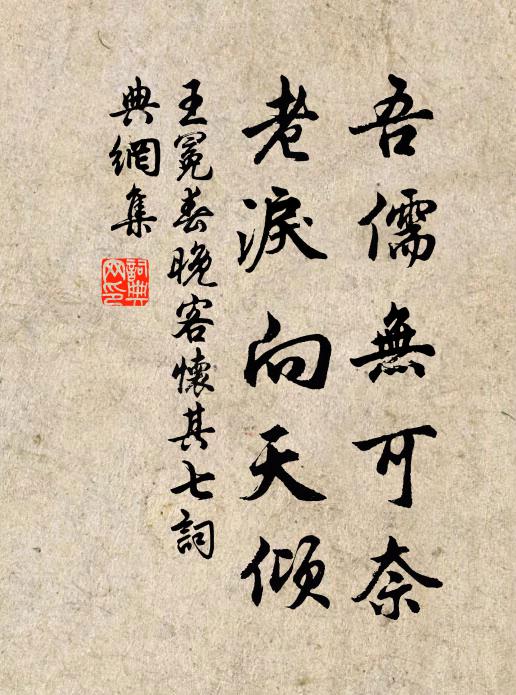 吾儒無可奈
老淚向天傾
王冕春晚客懷其七詞
典網集
詞典網印